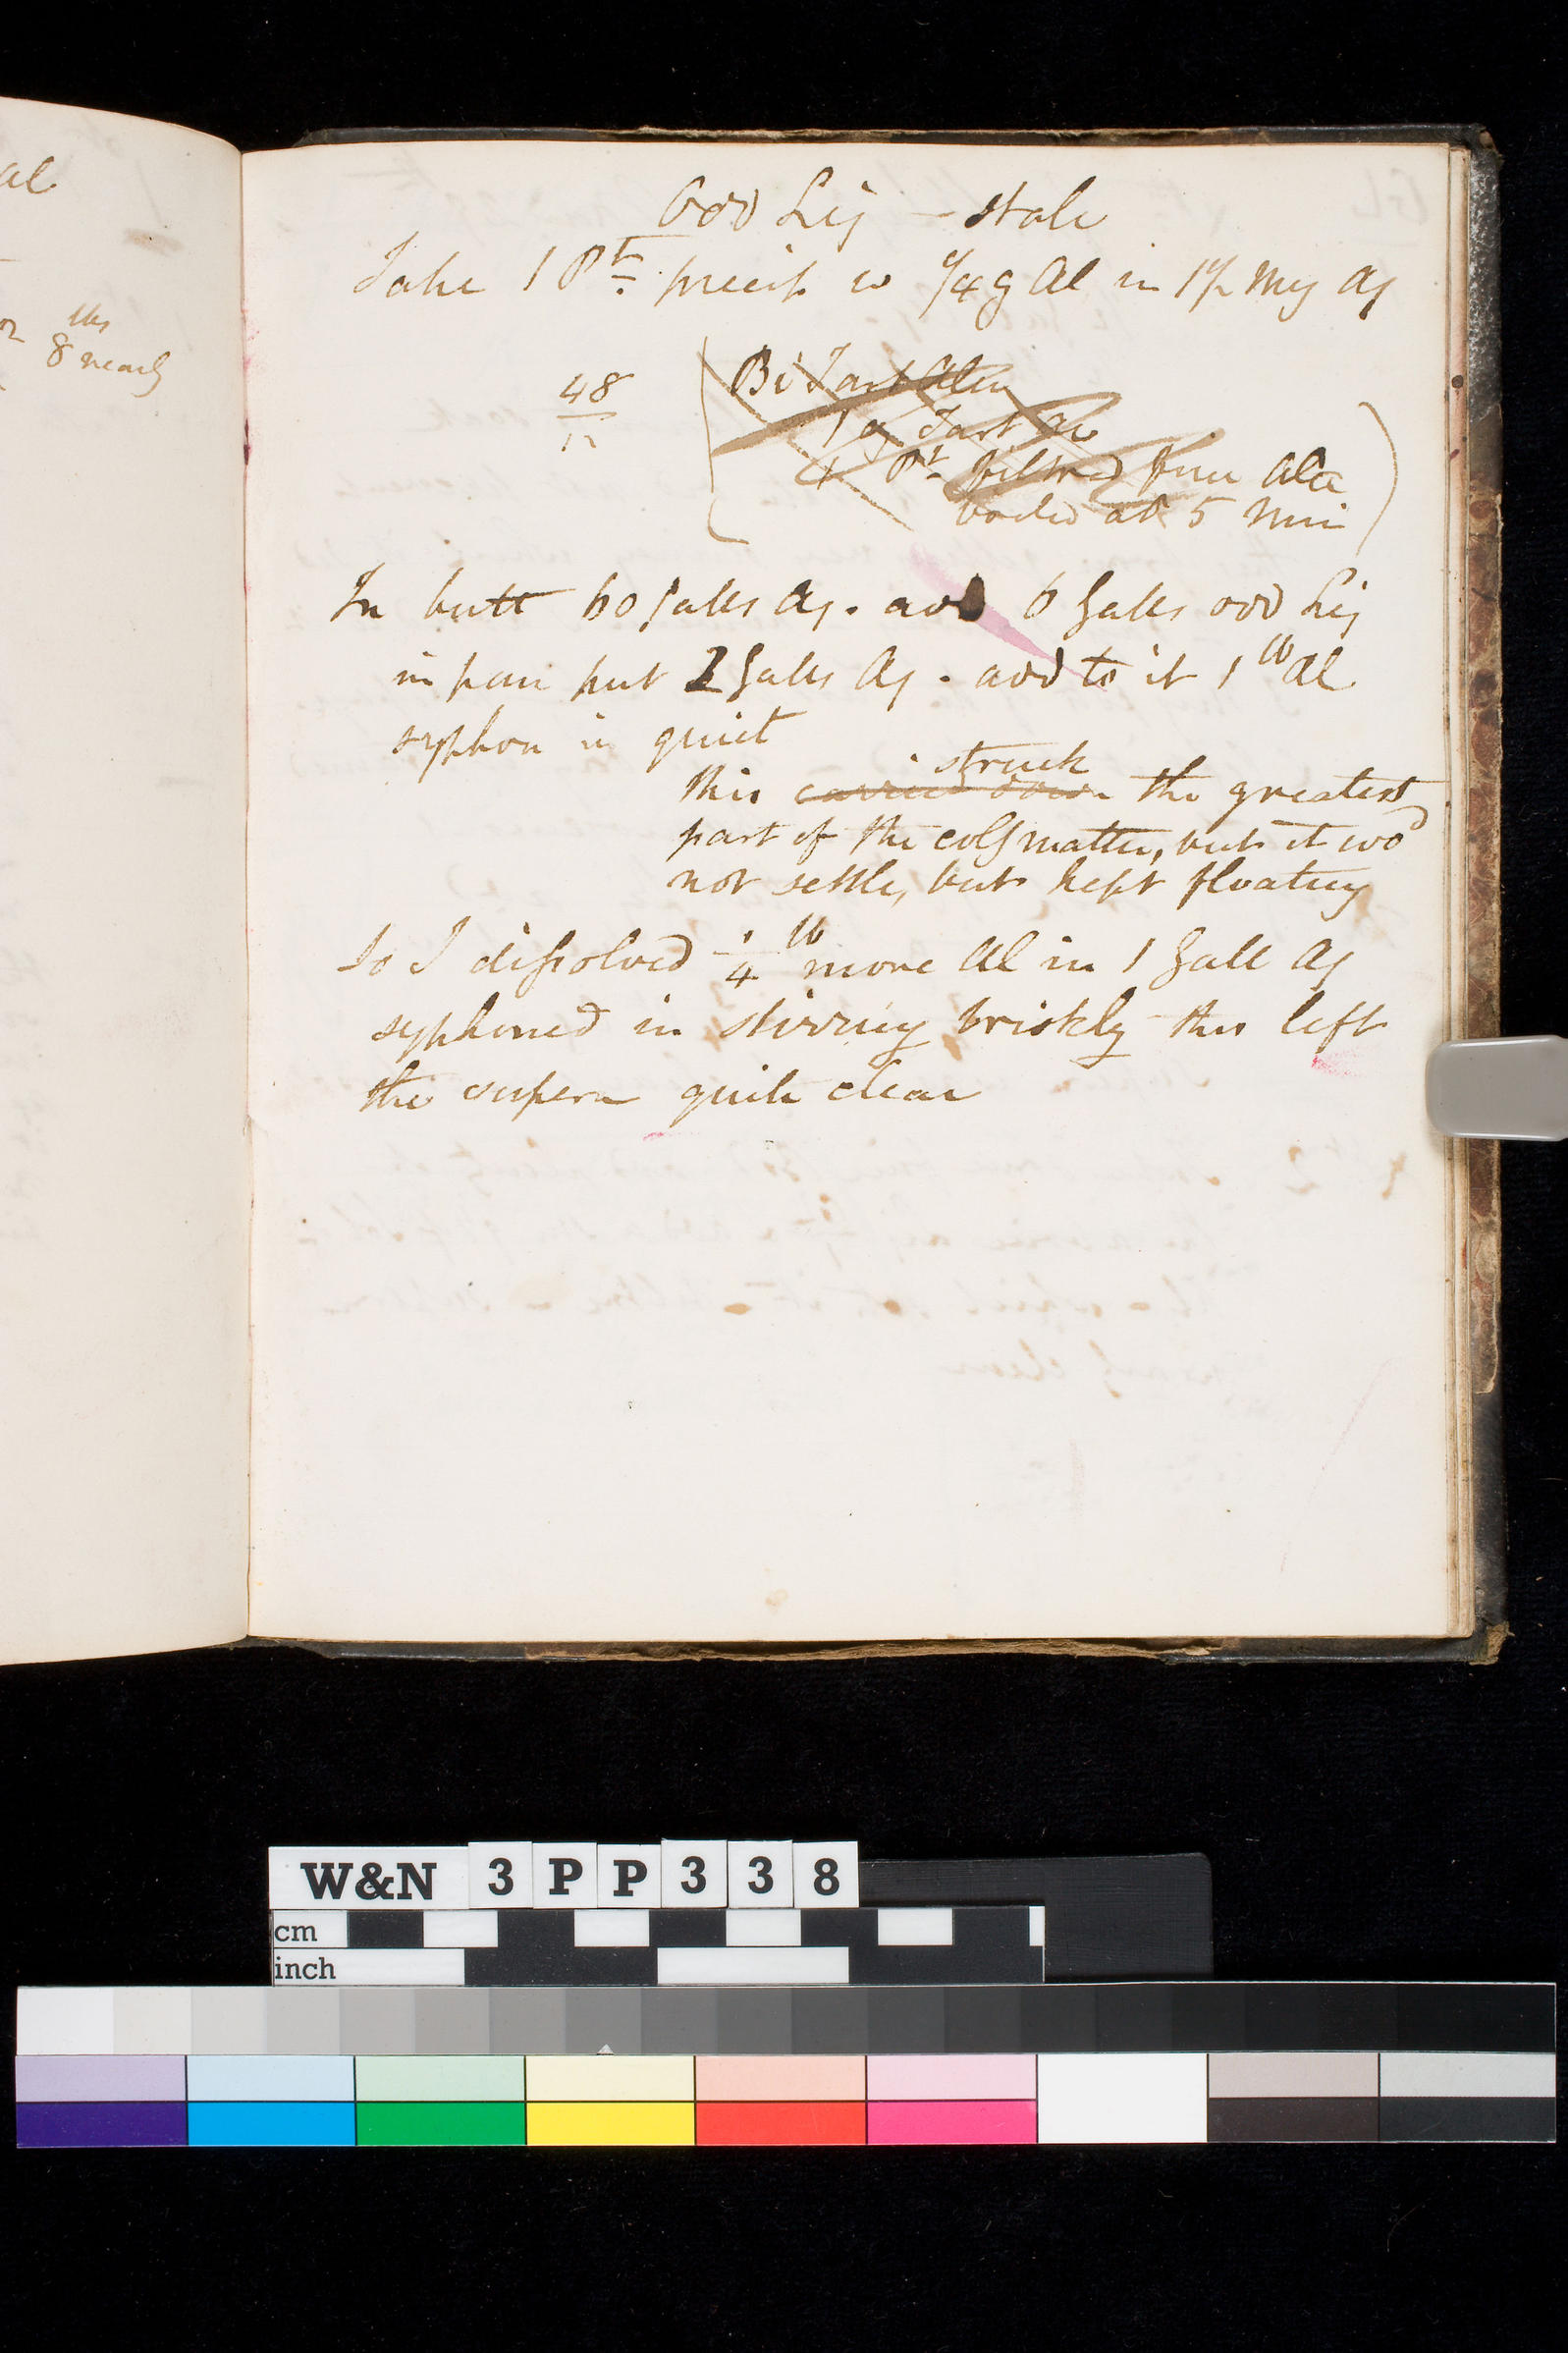 al
lbs
8 nearly
Odd Liq – stale
Take 1 Pt. precip w 1/4 g Al in 1 1/2 Mej Aq
48
Bi Tart Alum
1 g Tart
4 Pt. filtered fine Alu
boiled at 5 Min
In butt 60 galls Aq. add 6 Galls odd Liq
in pan put 2 Galls Aq. add to it 1 lb Al
syphon in quiet
struck
this carried down the greatest
part of the colg matter, but it wod
not settle, but kept floating
So I dissolved 1/4 lb more Al in 1 Gall Aq
syphoned in stirring briskly this left
the supern quite clear
W&N 3PP338
cm
inch